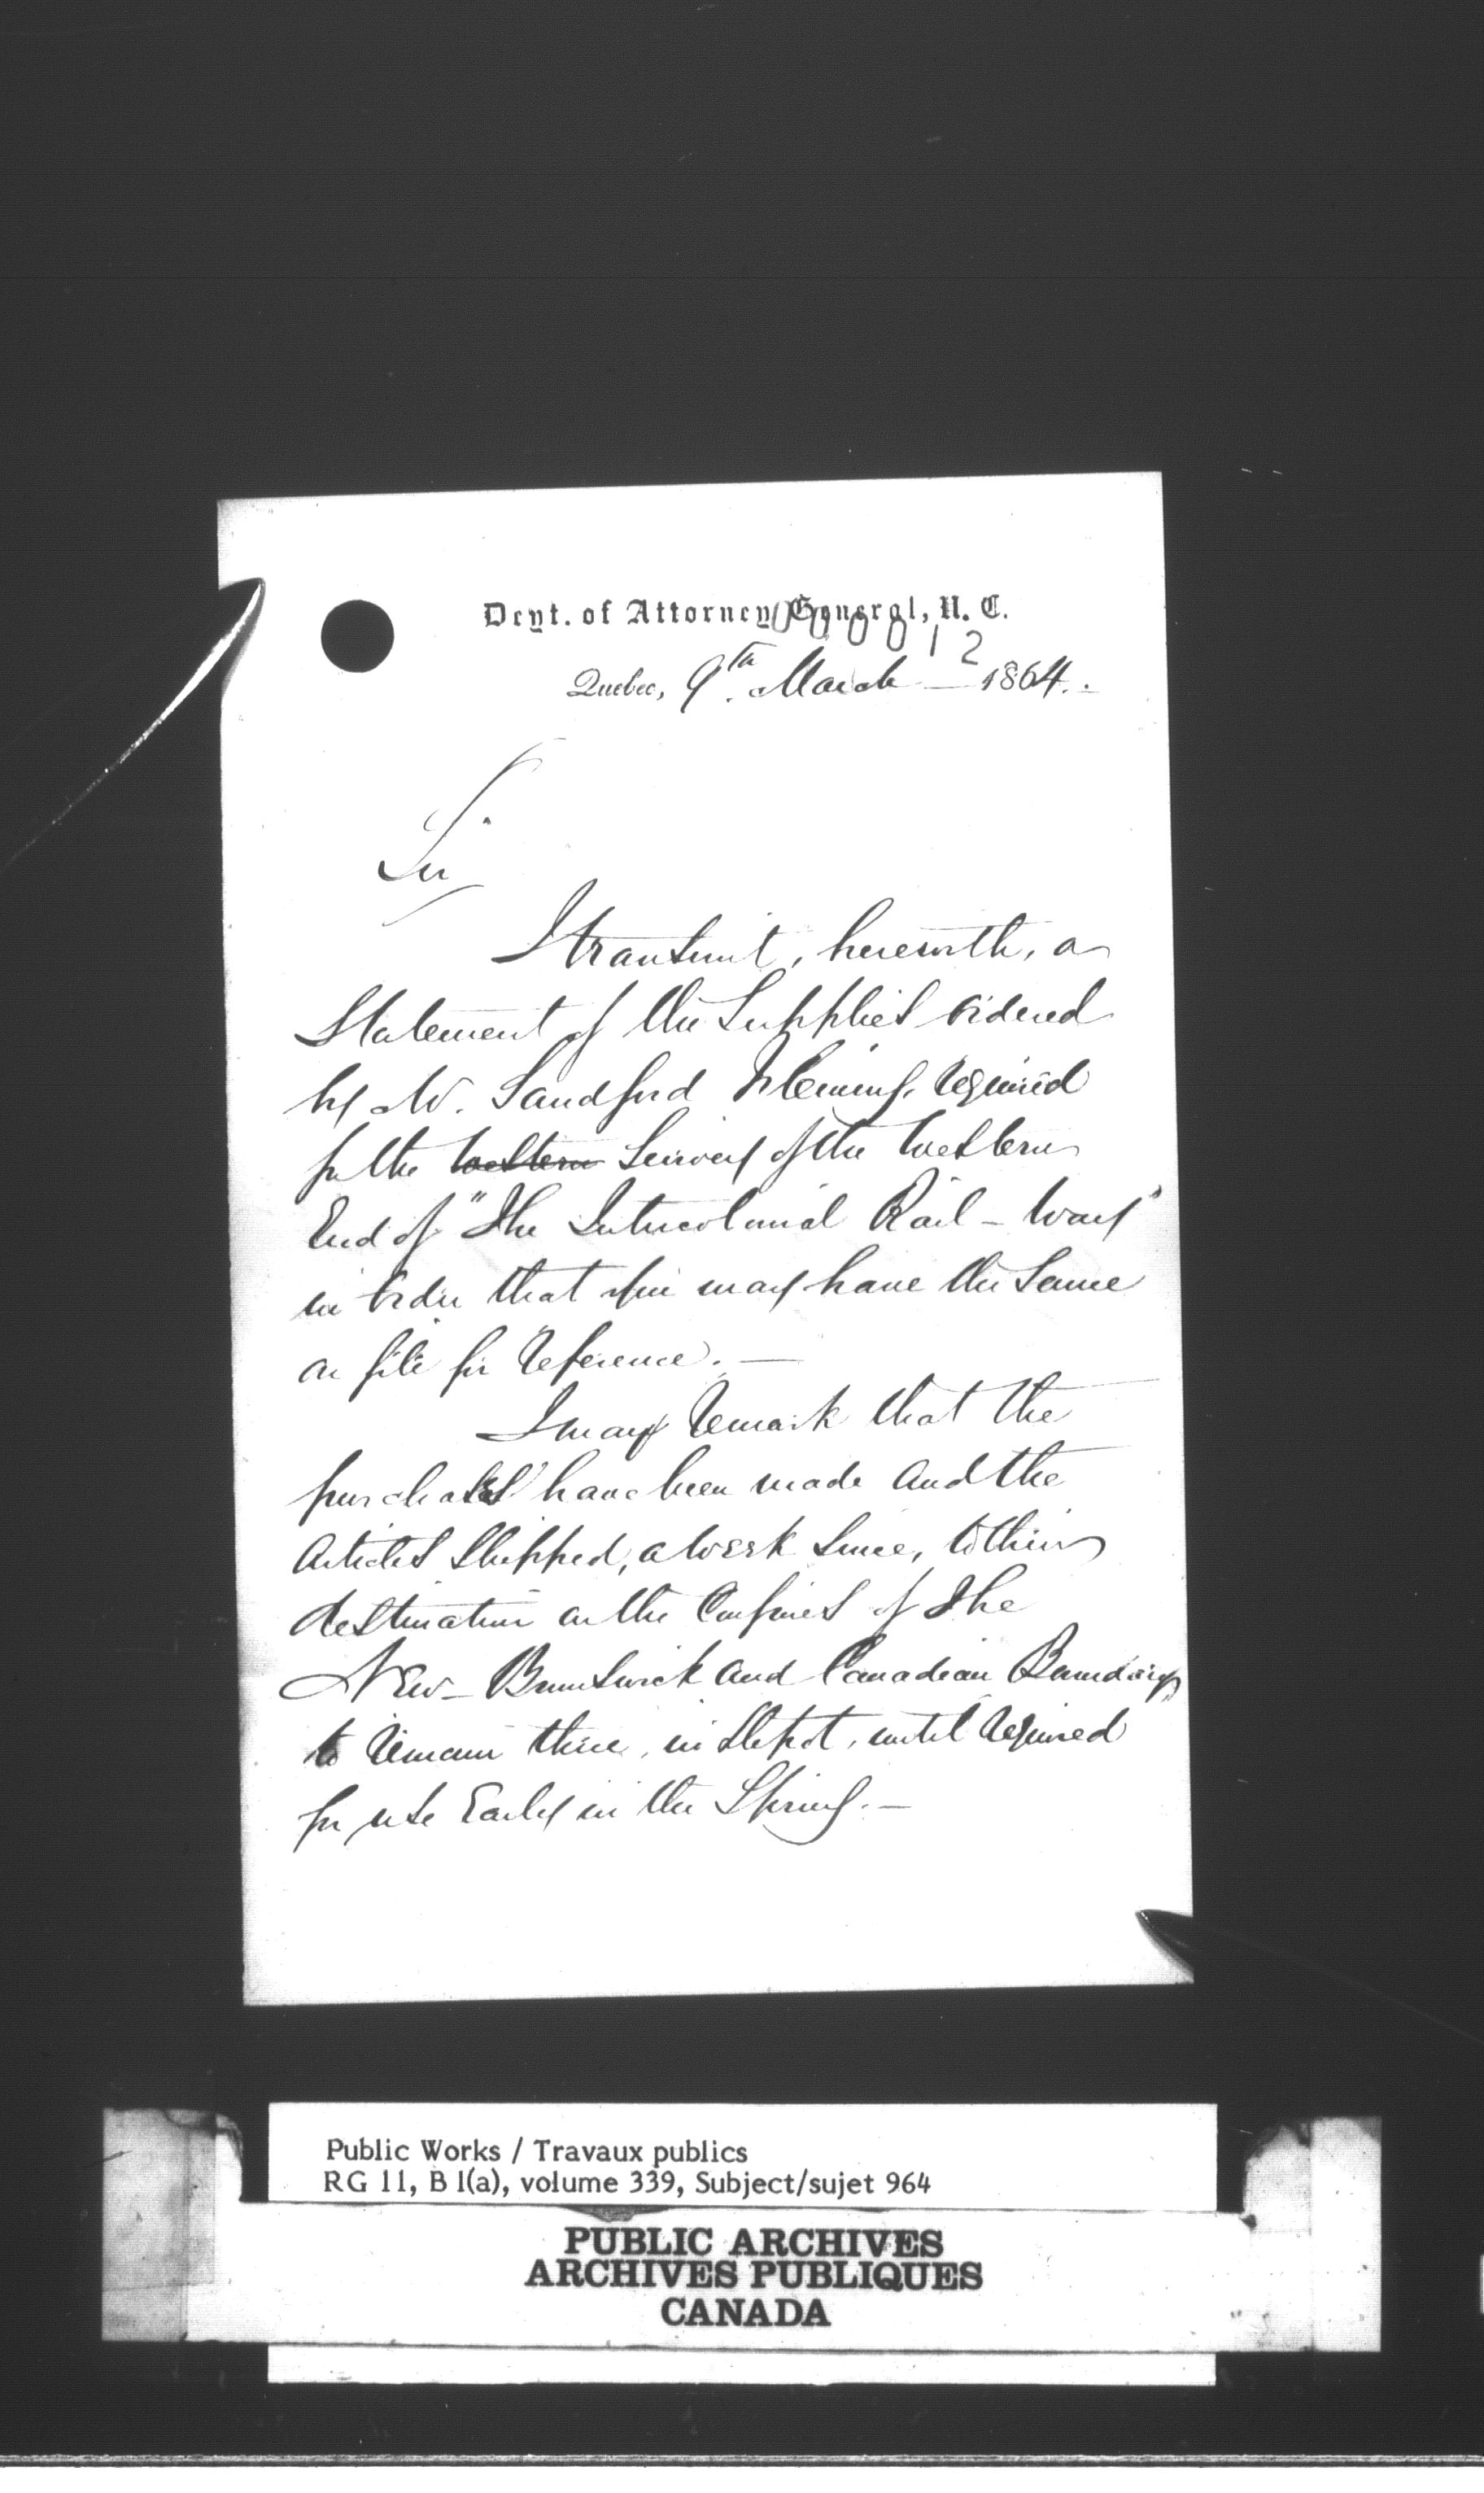 Dept. of Attorney General, U. C.
000012
Quebec, 9th. March — 1864.
Sir
I transmit, herewith, a
Statement of the Supplies ordered
by Mr. Sandford Fleming, required
for the Western Survey of the Western
End of "The Intercolonial Rail-Way"
in order that you may have the Same
on file for reference. —
I may remark that the
purchases have been made and the
Articles Shipped, a week Since, to their
destination on the Confines of The
New-Brunswick and Canadian Boundary
to remain there, in depot, until required
for use Early in the Spring. —
Public Works / Travaux publics
RG 11, B 1(a), volume 339, Subject/sujet 964
PUBLIC ARCHIVES
ARCHIVES PUBLIQUES
CANADA